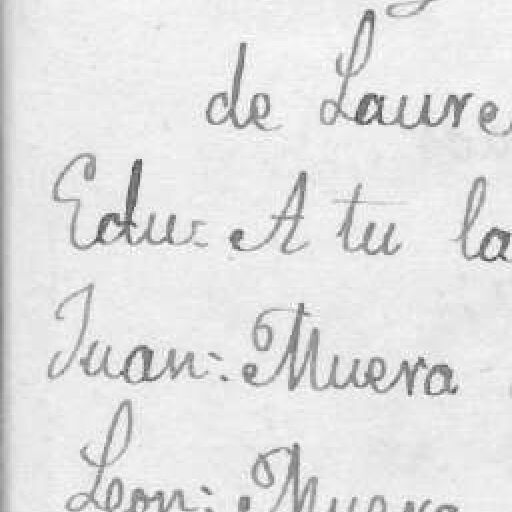 de Laure
Edu: A tu la
Juan: Muera
Leon: Muera